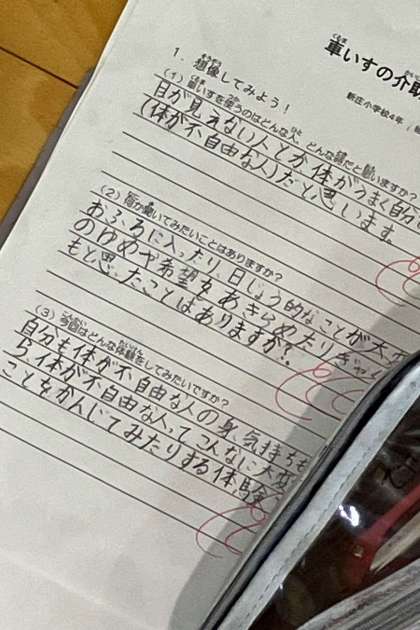 車いすの介助
新庄小学校4年
1. 想像してみよう！
(1) 車いすを使うのはどんな人、どんな時だと思いますか？
目が見えない人とか、体がうまく自
(体が不自由な人)だと思います。
(2) 何か聞いてみたいことはありますか？
おふろに入ったり、日じょう的なことが大
のゆめや希望もあきらめたりぎゃく
もと思ったことはありますか？
(3) 今回はどんな体験をしてみたいですか？
自分も体が不自由な人の身、気持ちも
ら、体が不自由な人ってこんなに大変
ことをかんじてみたりする体験